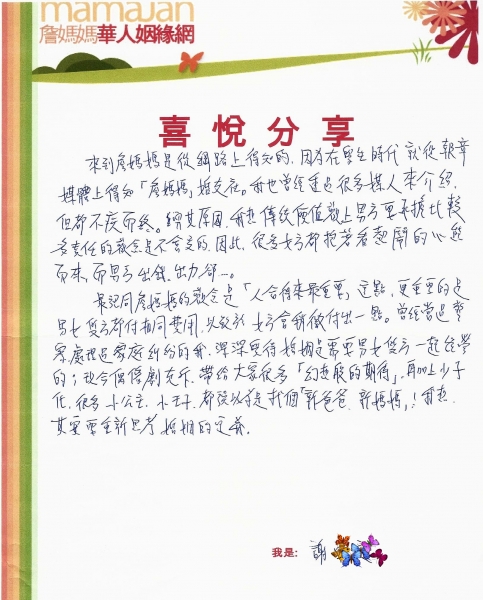 mamaJan
詹媽媽華人姻緣網
喜悅分享
來到詹媽媽是從網路上得知的,因為在學生時代就從報章
媒體上得知「詹媽媽」婚友社。我也曾經透過很多媒人來介紹,
但都不疾而終。究其原因,我想傳統價值觀上男方要承擔比較
多責任的觀念是不會變的,因此,很多女方都抱著看熱鬧的心態
而來,而男方出錢、出力、卻…。
最認同詹媽媽的觀念是「人合得來最重要」這點,更重要的是
男女雙方都付相同費用,以致於女方會稍微付出一點。曾經當過警
察處理過家庭糾紛的我,深深覺得婚姻是需要男女雙方一起經營
的;現今偶像劇充斥,帶給大家很多「幻想般的期待」,再加上少子
化,很多小公主、小王子,都誤以為是找個「新爸爸、新媽媽」!我想,
其實要重新思考婚姻的定義。
我是: 謝